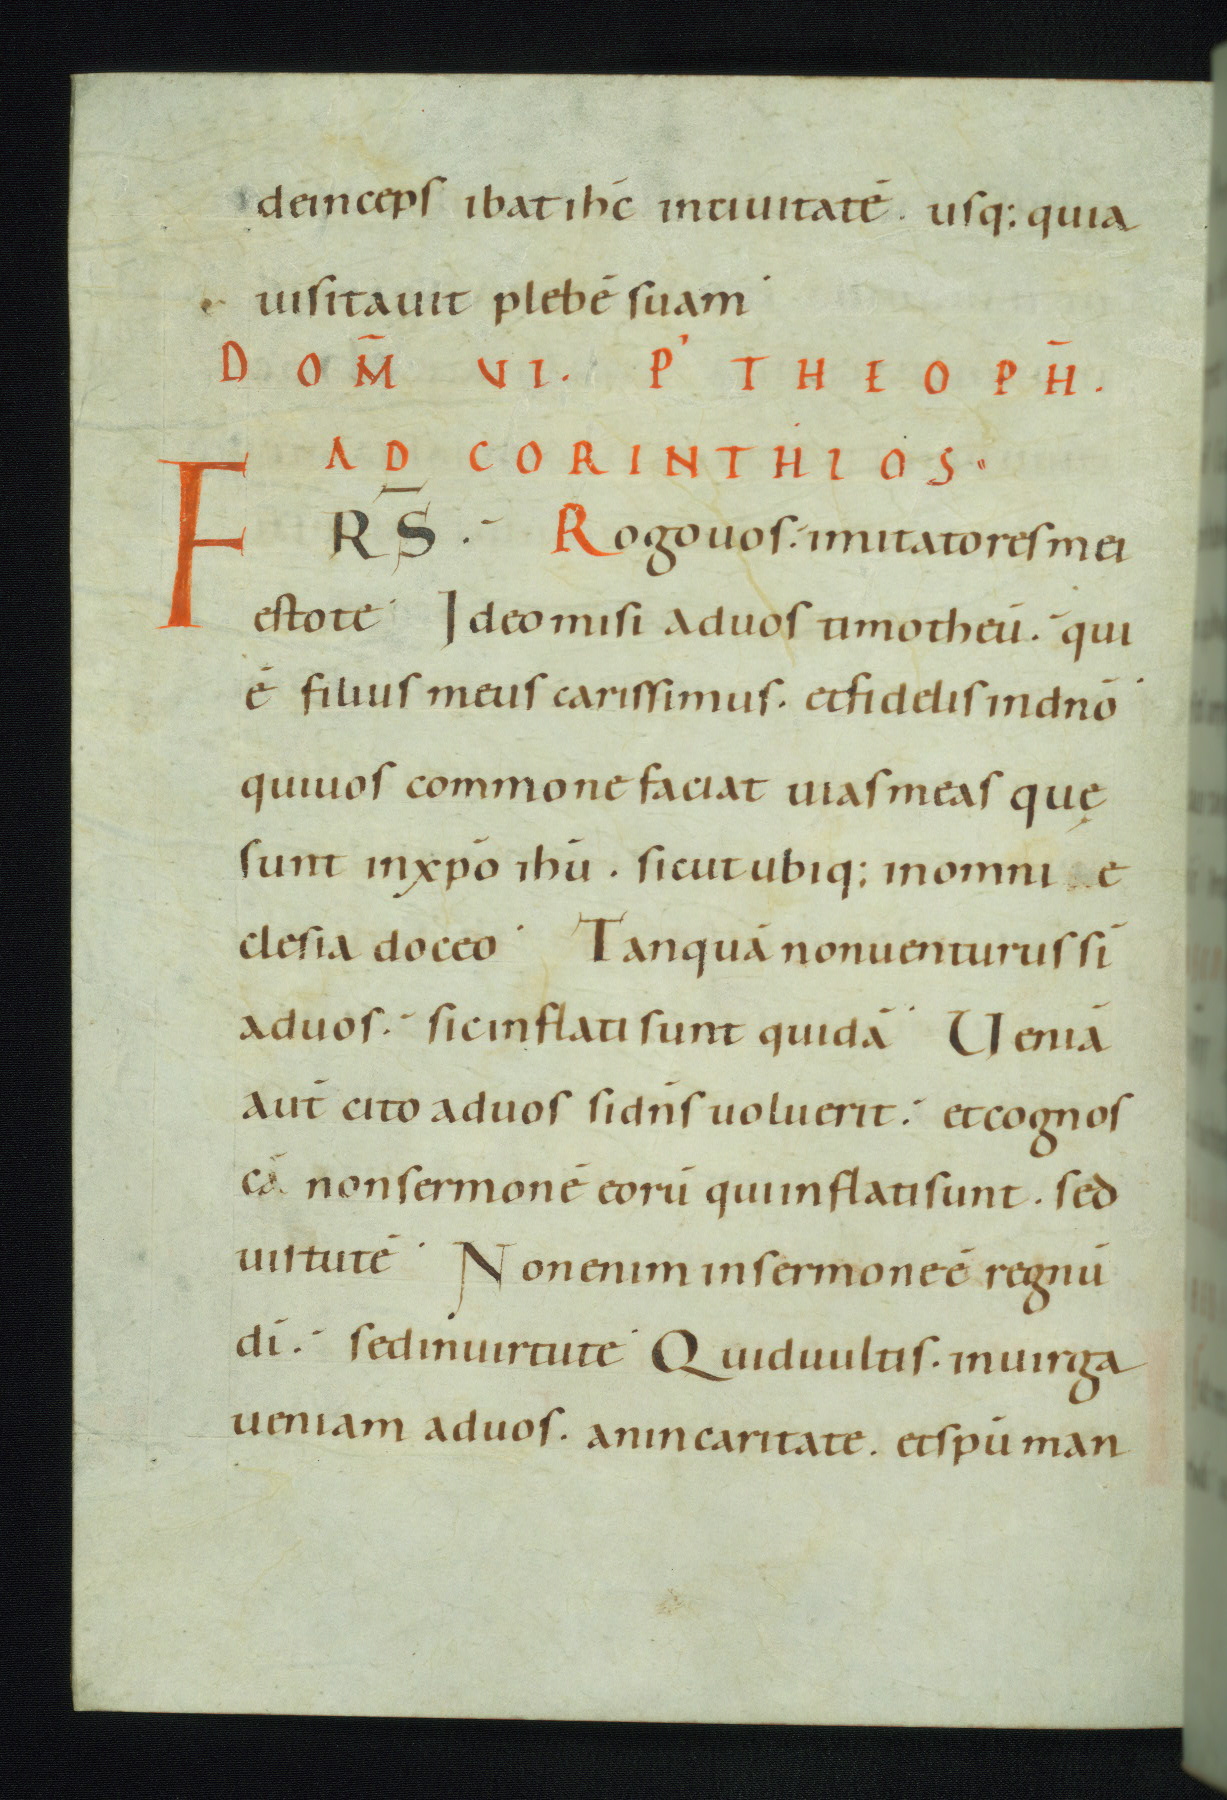 deinceps ibat ihc̄ inciuitatē. usq; quia
uisitauit plebē suam
DOM̄ VI. P' THEOPH̄.
AD CORINTHIOS.
FRS̄. Rogo uos. imitatores mei
estote Ideo misi ad uos timotheū. qui
ē filius meus carissimus. et fidelis in dn̄o
qui uos commone faciat uias meas quę
sunt in xp̄o ihū. sicut ubiq; in omni e
clesia doceo Tanquā non uenturus sī
ad uos. sic inflati sunt quidā Ueniā
aut̄ cito ad uos si dn̄s uoluerit. et cognos
cā non sermonē eorū qui inflati sunt. sed
uirtutē Non enim in sermone ē regnū
dī. sed in uirtute Quid uultis. in uirga
ueniam ad uos. an in caritate. et sp̄u man